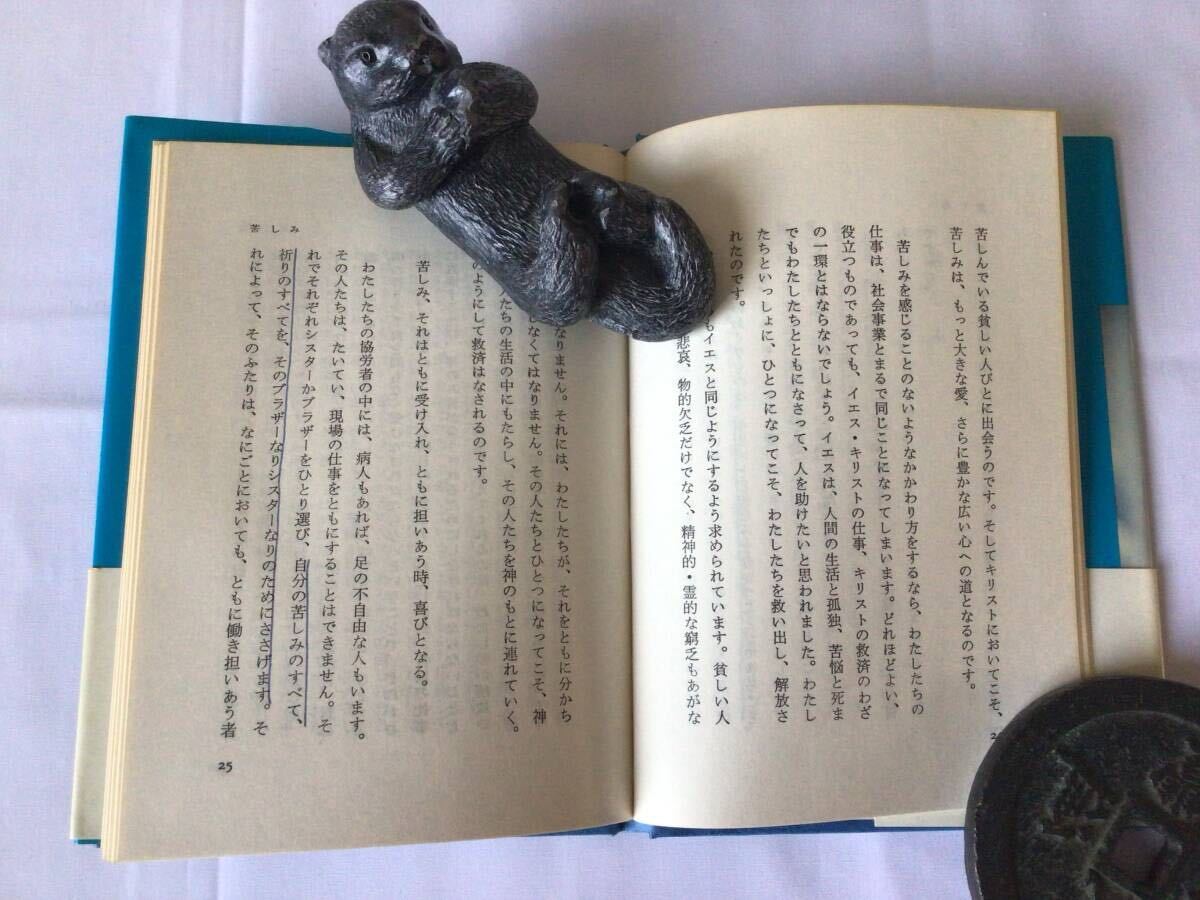 苦しんでいる貧しい人びとに出会うのです。そしてキリストにおいてこそ、
苦しみは、もっと大きな愛、さらに豊かな広い心への道となるのです。
苦しみを感じることのないようなかかわり方をするなら、わたしたちの
仕事は、社会事業とまるで同じことになってしまいます。どれほどよい、
役立つものであっても、イエス・キリストの仕事、キリストの救済のわざ
の一環とはならないでしょう。イエスは、人間の生活と孤独、苦悩と死ま
でもわたしたちとともになさって、人を助けたいと思われました。わたし
たちといっしょに、ひとつになってこそ、わたしたちを救い出し、解放さ
れたのです。
もイエスと同じようにするよう求められています。貧しい人
悲哀、物的欠乏だけでなく、精神的・霊的な窮乏もあがな
なりません。それには、わたしたちが、それをともに分かち
なくてはなりません。その人たちとひとつになってこそ、神
たちの生活の中にもたらし、その人たちを神のもとに連れていく。
のようにして救済はなされるのです。
苦しみ、それはともに受け入れ、ともに担いあう時、喜びとなる。
わたしたちの協労者の中には、病人もあれば、足の不自由な人もいます。
その人たちは、たいてい、現場の仕事をともにすることはできません。そ
れでそれぞれシスターかブラザーをひとり選び、自分の苦しみのすべて、
祈りのすべてを、そのブラザーなりシスターなりのためにささげます。そ
れによって、そのふたりは、なにごとにおいても、ともに働き担いあう者
苦しみ
25